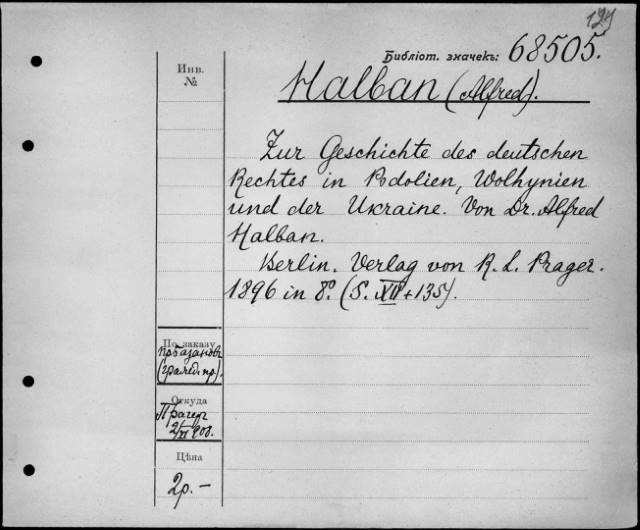 129
Библіот. значекъ: 68505.
Инв.
№
Halban (Alfred).
Zur Geschichte des deutschen
Rechtes in Podolien, Wolhynien
und der Ukraine. Von Dr. Alfred
Halban.
Berlin. Verlag von R. L. Prager.
1896 in 8°. (S. XII + 135).
По заказу
(гражд. пр.).
Откуда
Прагер
Цѣна
2р. –